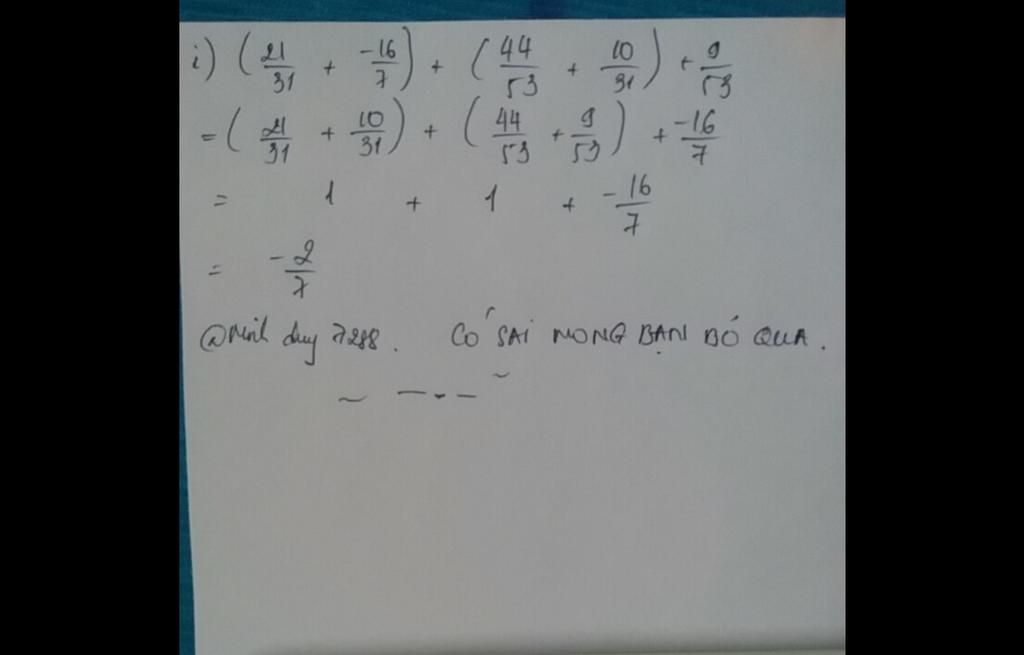 i) (21/31 + -16/7) + (44/53 + 10/31) + 9/53
= (21/31 + 10/31) + (44/53 + 9/53) + -16/7
= 1 + 1 + -16/7
= -2/7
@minh duy 7288. CÓ SAI MONG BẠN BỎ QUA.